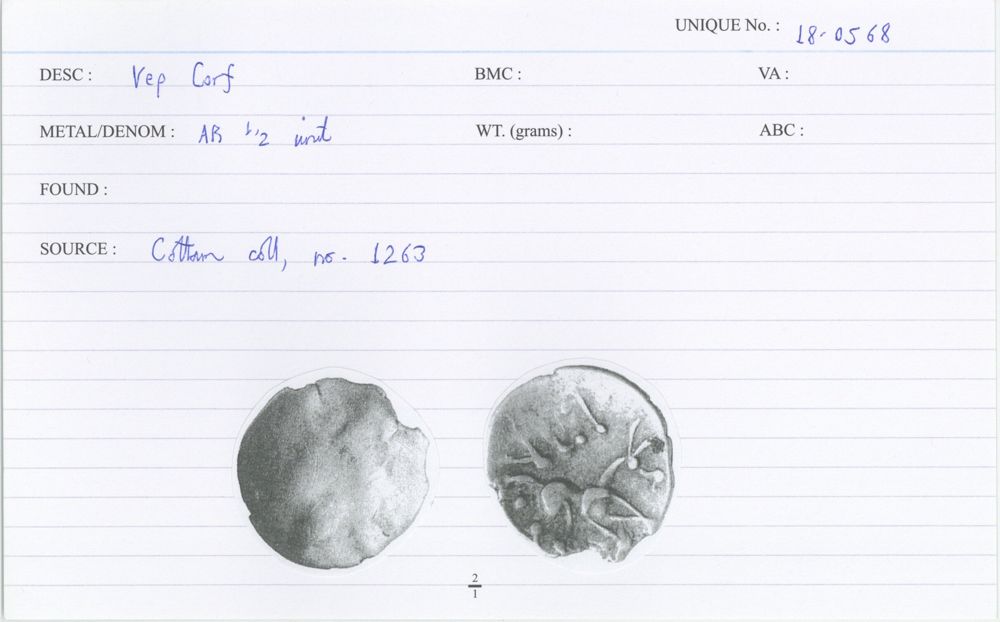 UNIQUE No. : 18-0568
DESC : Vep Corf BMC : VA :
METAL/DENOM : AR 1/2 unit WT. (grams) : ABC :
FOUND :
SOURCE : Cottam coll, no. 1263
2
1